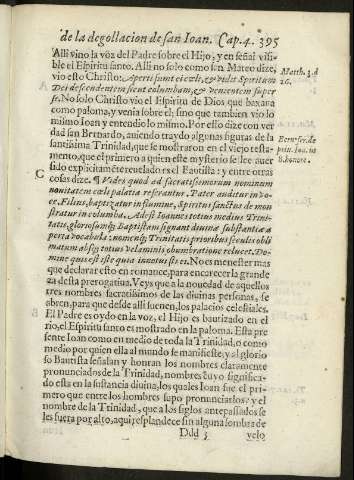 de la degollacion de san Ioan. Cap. 4. 395
Alli vino la voz del Padre sobre el Hijo, y en señal visi
ble el Espiritu santo. Alli no solo como san Mateo dize,
vio esto Christo: Aperti sunt ei cœli, & vidit Spiritum
Dei descendentem sicut columbam, & venientem super
se. No solo Christo vio el Espiritu de Dios que baxaua
como paloma, y venia sobre el; sino que tambien vio lo
mismo Ioan y entendio lo mismo. Por ello dize con ver
dad san Bernardo, auiendo traydo algunas figuras de la
santissima Trinidad, que se mostraron en el viejo testa-
mento, que el primero a quien este mysterio se lee auer
sido explicitamēte reuelado es el Bautista: y entre otras
cosas dize. ¶ Vides quod ad sacratissimorum nominum
nouitatem cœli palatia reserantur. Pater auditur in vo-
ce. Filius, baptizatur in flumine, Spiritus sanctus de mon
stratur in columba. Adest Ioannes totius medius Trini-
tatis, gloriosumq; Baptistam signant diuinæ substantiæ a
perta vocabula: nomenq; Trinitatis prioribus seculis obli
matum absq; totius velaminis obumbratione relucet. Do-
mine quis est iste quia innotuisti ei. No es menester mas
que declarar esto en romance, para encarecer la grande
za desta prerogatiua. Veys que a la nouedad de aquellos
tres nombres sacratissimos de las diuinas personas, se
abren, para que desde alli suenen, los palacios celestiales.
El Padre es oydo en la voz, el Hijo es bautizado en el
rio, el Espiritu santo es mostrado en la paloma. Esta pre
sente Ioan como en medio de toda la Trinidad, o como
medio por quien ella al mundo se manifieste, y al glorio
so Bautista señalan y honran los nombres claramente
pronunciados de la Trinidad, nombres cuyo significa-
do esta en la sustancia diuina, los quales Ioan fue el pri-
mero que entre los hombres supo pronunciarlos: y el
nombre de la Trinidad, que a los siglos antepassados se
les fuera por alto, aqui resplandece sin alguna sombra de
Ddd 3 velo
Matth. 3. d
16.
Bern. ser. de
C